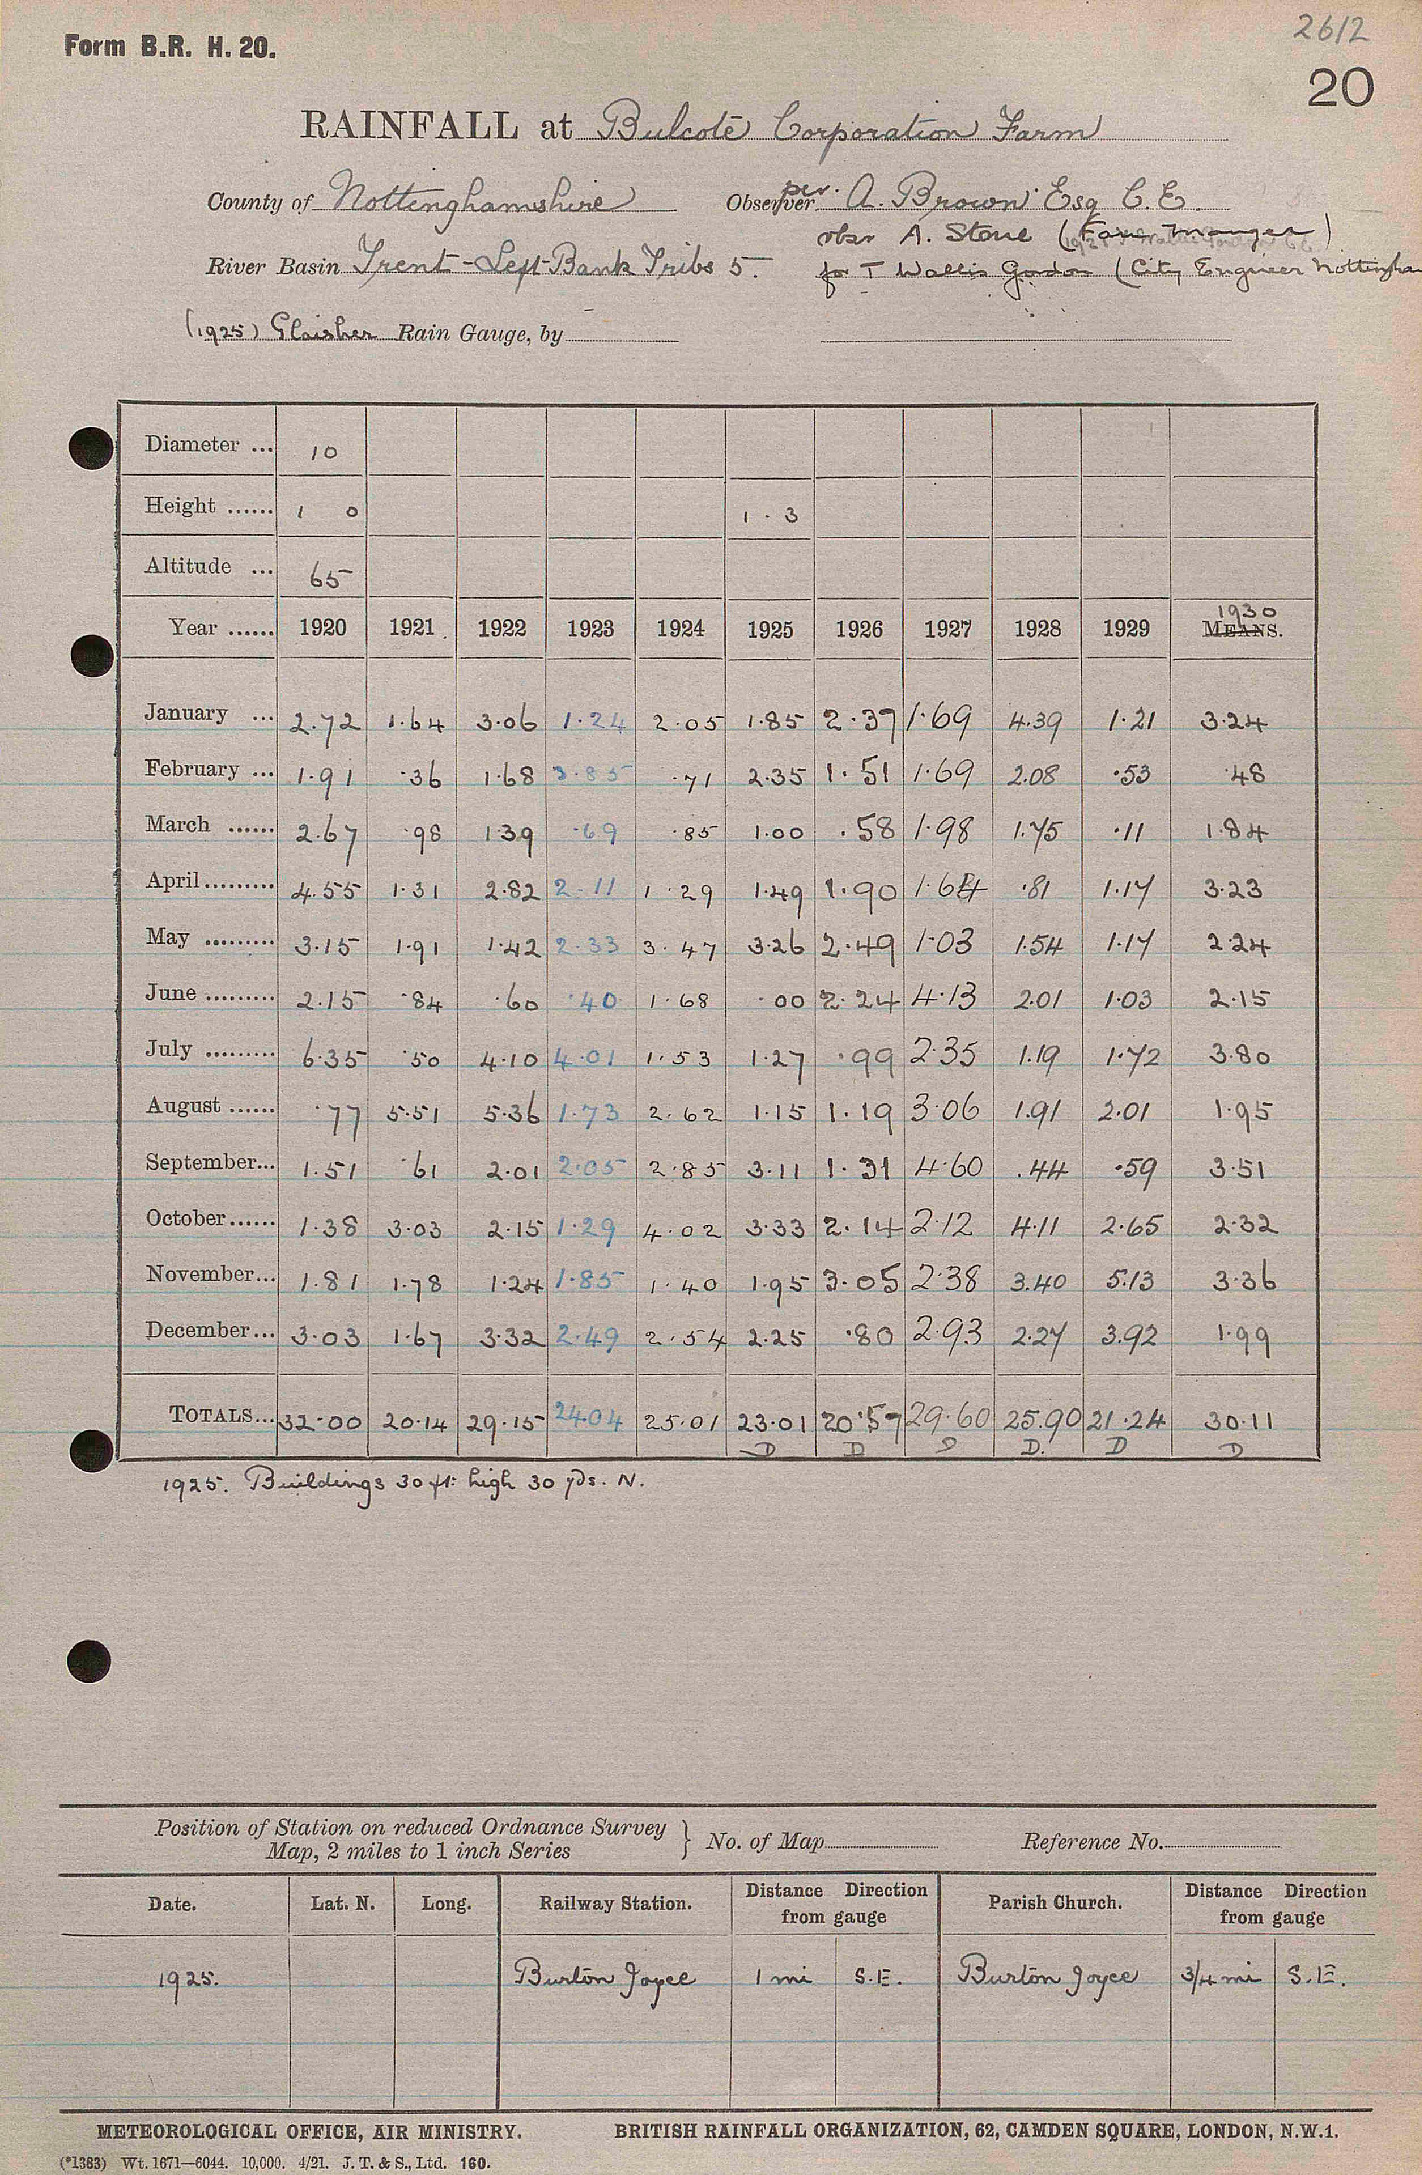 2612
Form B.R. H. 20.
20
RAINFALL at Bulcote Corporation Farm
County of Nottinghamshire Observer per. A. Brown Esq C.E.
obsr A. Stone (Farm Manager)
River Basin Trent - Left Bank Tribs 5. for T Wallis Gordon (City Engineer Nottingham
(1925) Glaisher Rain Gauge, by
Diameter ... 10
Height ...... 1 0 1 · 3
Altitude ... 65
Year ...... 1920 1921 1922 1923 1924 1925 1926 1927 1928 1929 1930 MEANS.
January ... 2.72 1.64 3.06 1.24 2.05 1.85 2.37 1.69 4.39 1.21 3.24
February ... 1.91 .36 1.68 3.85 .71 2.35 1.51 1.69 2.08 .53 .48
March ...... 2.67 .98 1.39 .69 .85 1.00 .58 1.98 1.75 .11 1.84
April ......... 4.55 1.31 2.82 2.11 1.29 1.49 1.90 1.64 .81 1.17 3.23
May ......... 3.15 1.91 1.42 2.33 3.47 3.26 2.49 1.03 1.54 1.17 2.24
June ......... 2.15 .84 .60 .40 1.68 .00 2.24 4.13 2.01 1.03 2.15
July ......... 6.35 .50 4.10 4.01 1.53 1.27 .99 2.35 1.19 1.72 3.80
August ...... .77 5.51 5.36 1.73 2.62 1.15 1.19 3.06 1.91 2.01 1.95
September... 1.51 .61 2.01 2.05 2.85 3.11 1.31 4.60 .44 .59 3.51
October...... 1.38 3.03 2.15 1.29 4.02 3.33 2.14 2.12 4.11 2.65 2.32
November... 1.81 1.78 1.24 1.85 1.40 1.95 3.05 2.38 3.40 5.13 3.36
December... 3.03 1.67 3.32 2.49 2.54 2.25 .80 2.93 2.27 3.92 1.99
TOTALS... 32.00 20.14 29.15 24.04 25.01 23.01 20.57 29.60 25.90 21.24 30.11
D D D D. D D
1925. Buildings 30 ft. high 30 yds. N.
Position of Station on reduced Ordnance Survey
Map, 2 miles to 1 inch Series } No. of Map Reference No.
Date. Lat. N. Long. Railway Station. Distance Direction from gauge Parish Church. Distance Direction from gauge
1925. Burton Joyce 1 mi S.E. Burton Joyce 3/4 mi S.E.
METEOROLOGICAL OFFICE, AIR MINISTRY. BRITISH RAINFALL ORGANIZATION, 62, CAMDEN SQUARE, LONDON, N.W.1.
(*1383) Wt. 1671—6044. 10,000. 4/21. J. T. & S., Ltd. 160.